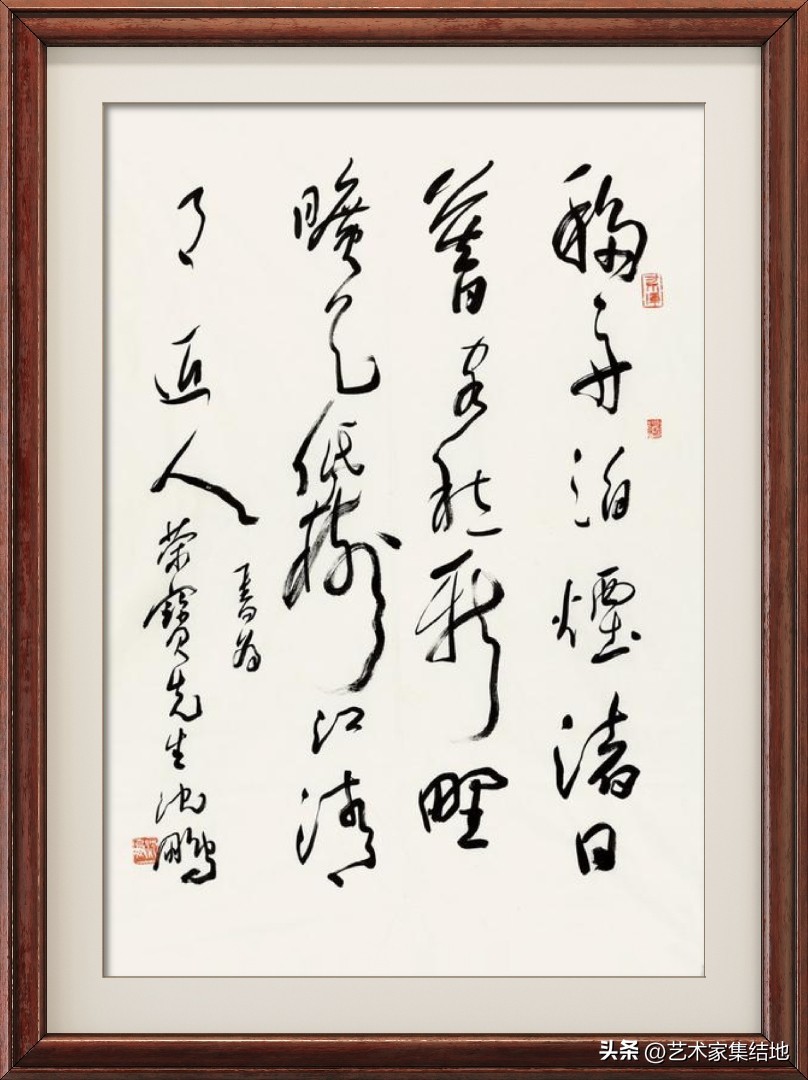 移舟泊煙渚日
暮客愁新野
曠天低樹江清
月近人
書為
荣寶先生沈鵬
头条 @艺术家集结地